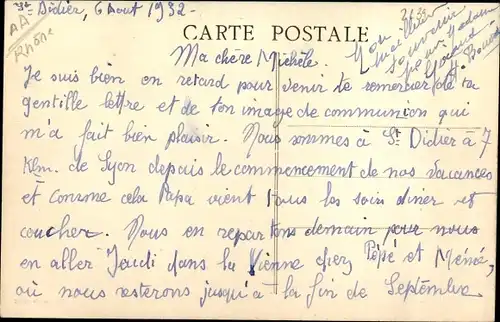 St Didier, 6 Aout 1932 -
AA
Rhône
CARTE POSTALE
Mon
meilleur
souvenir
pour Madame
Ma chère Michèle.
Je suis bien en retard pour venir te remercier de ta
gentille lettre et de ton image de communion qui
m'a fait bien plaisir. Nous sommes à St Didier à 7
Klm. de Lyon depuis le commencement de nos vacances
et comme cela Papa vient tous les soir diner et
coucher. Nous en repartons demain pour nous
en aller Jeudi dans la Vienne chez Pépé et Mémé,
où nous resterons jusqu'à la fin de Septembre